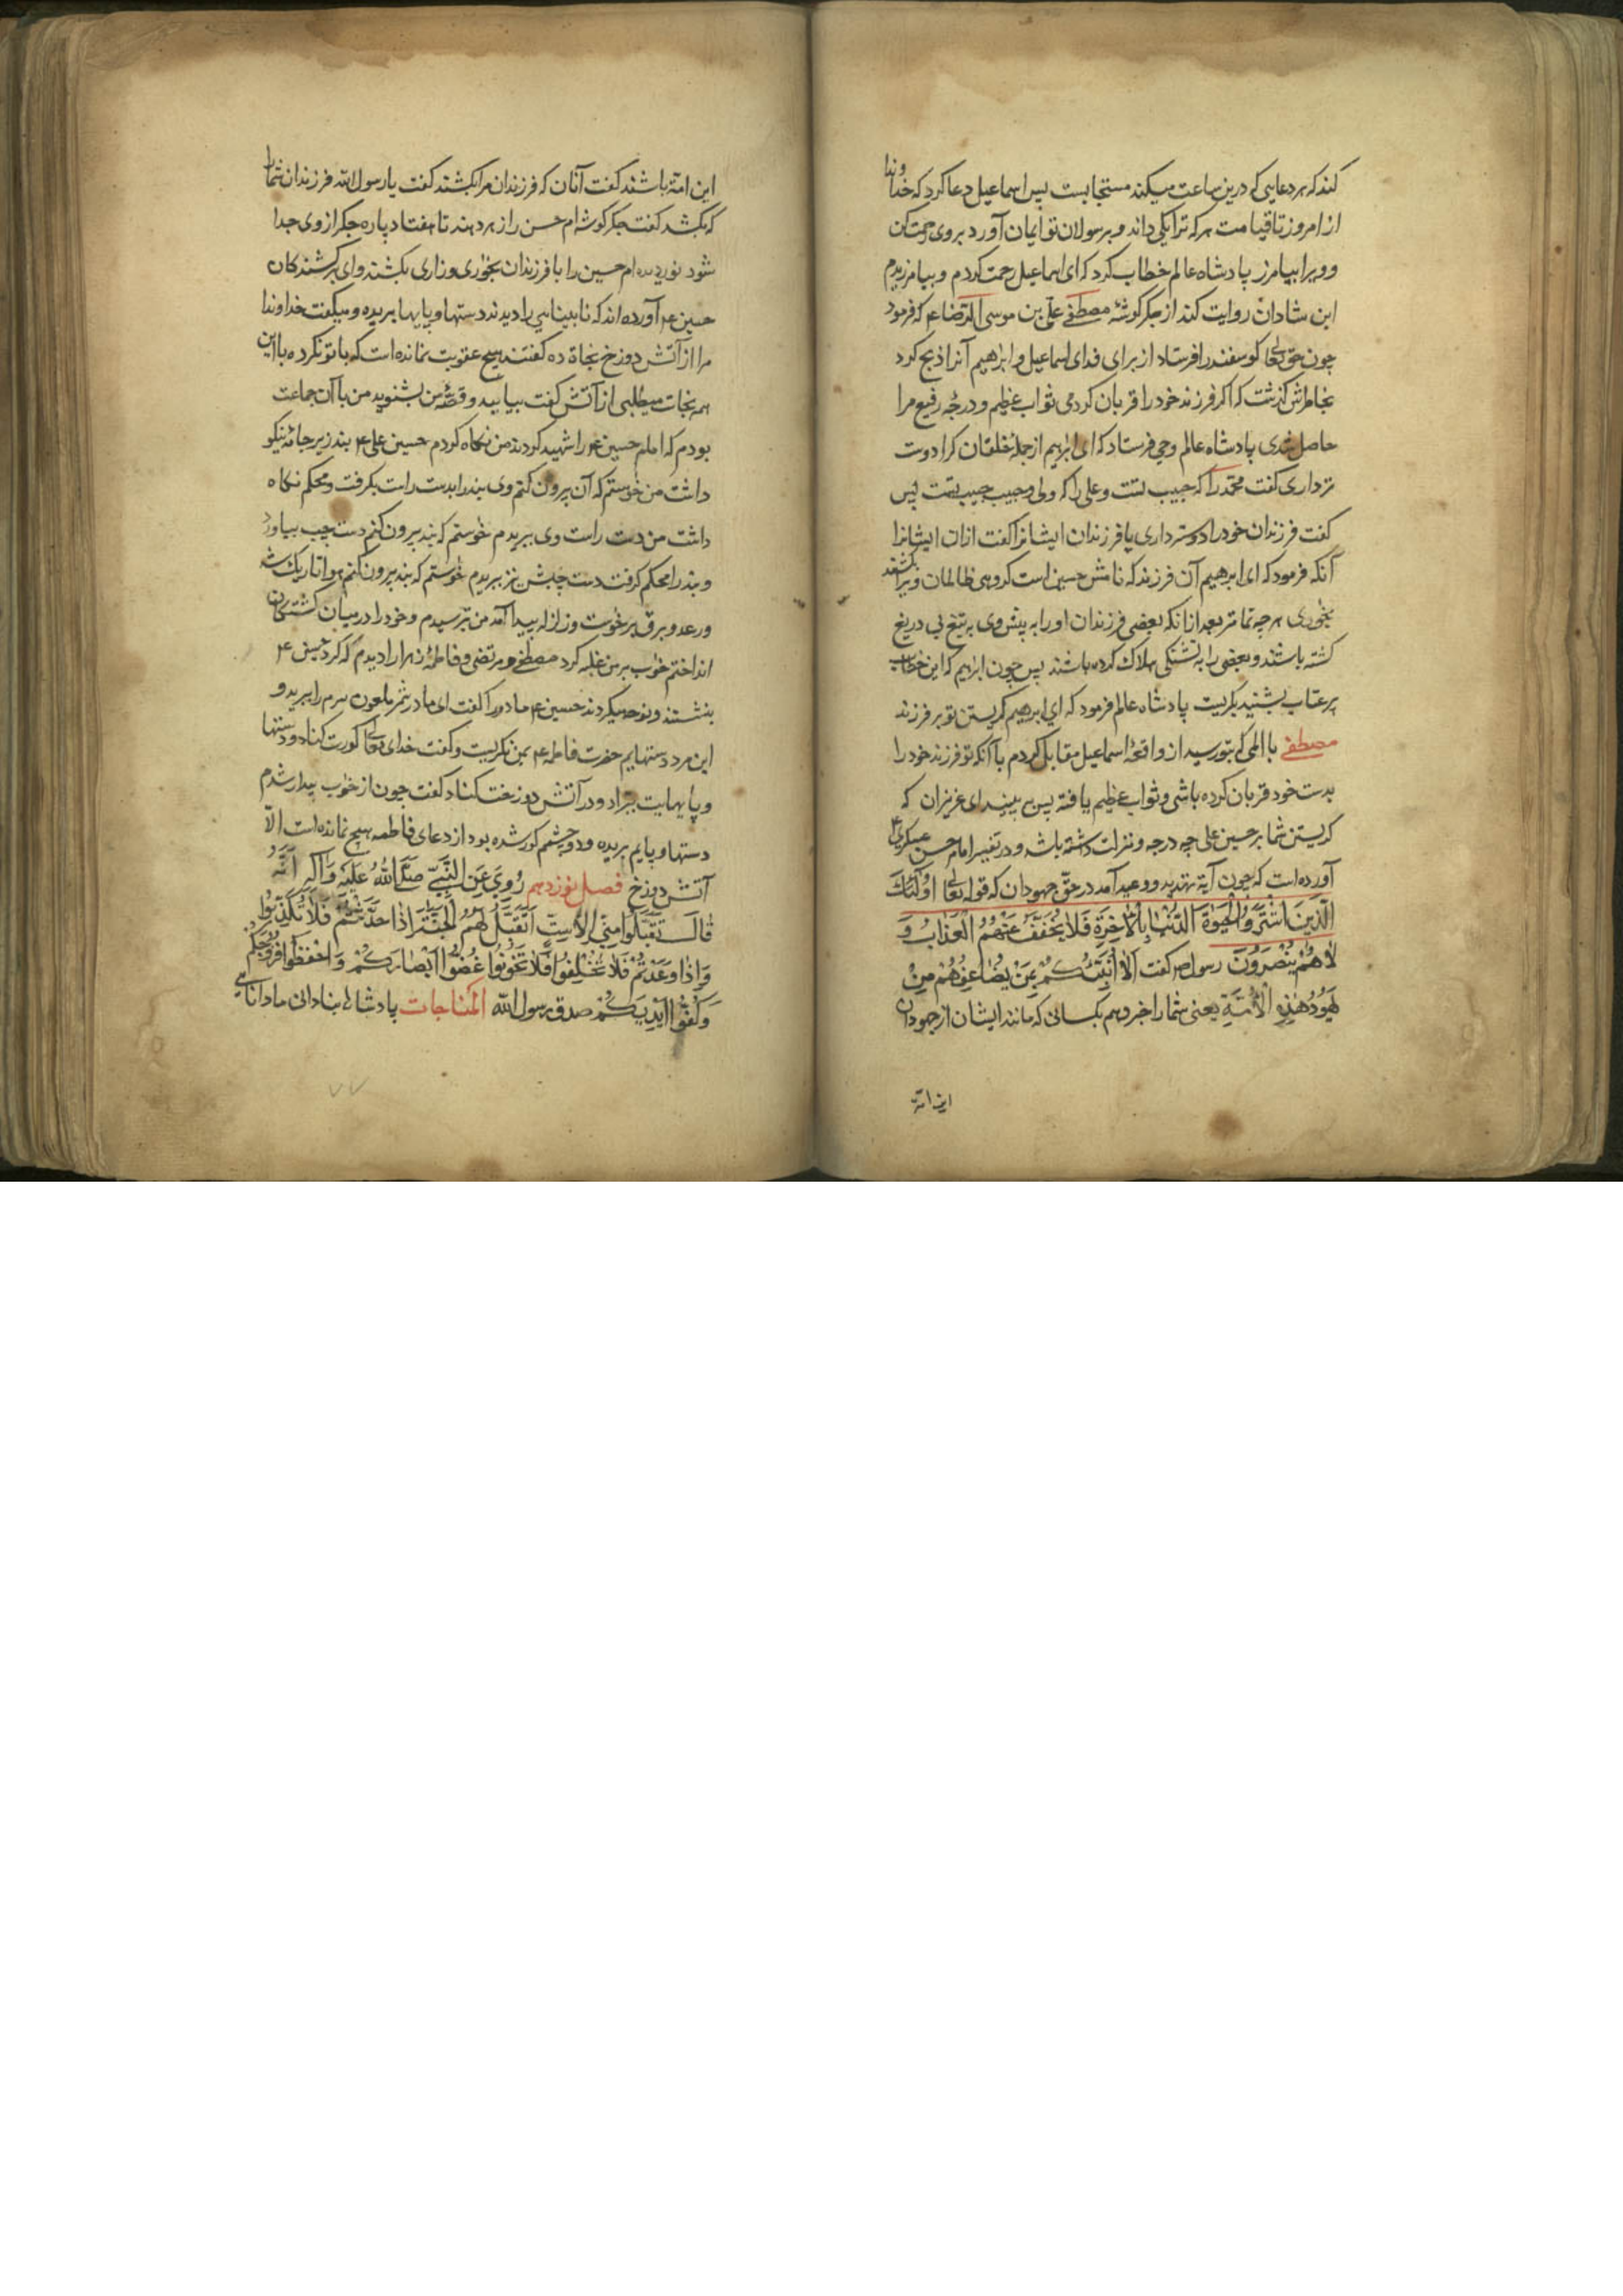 کند که هر دعایی که درین ساعت میکند مستجابست پس اسماعیل دعا کرد که خداوندا
از امروز تا قیامت هر که ترا یکی داند و برسولان تو ایمان آورد بر وی رحمت کن
و ویرا بیامرز پادشاه عالم خطاب کرد که ای اسماعیل رحمت کردم و بیامرزیدم
ابن شادان روایت کند از جکر کوشهٔ مصطفی علی بن موسی الرضا ع که فرمود
چون حق تعالی کوسفند را فرستاد از برای فدای اسماعیل و ابراهیم آنرا ذبح کرد
بخاطرش کذشت که اکر فرزند خود را قربان کردمی ثواب عظیم و درجهٔ رفیع مرا
حاصل شدی پادشاه عالم وحی فرستاد که ای ابراهیم از جملهٔ خلقان کرا دوست
تر داری کفت محمد را که حبیب تست و علی را که ولی و حبیب حبیب تست پس
کفت فرزندان خود را دوستر داری یا فرزندان ایشانرا کفت ازان ایشانرا
آنکه فرمود که ای ابرهیم آن فرزند که نامش حسین است کروهی ظالمان ویرا بکشند
بخواری هر چه تمامتر بعد ازانکه بعضی فرزندان او را به پیش وی بر تیغ بی دریغ
کشته باشند و بعضی را به تشنکی هلاک کرده باشند پس چون ابراهیم که این خطاب
پر عتاب بشنید بکریست پادشاه عالم فرمود که ای ابرهیم کریستن تو بر فرزند
مصطفی با المی که بتو رسید از واقعهٔ اسماعیل مقابل کردم با آنکه تو فرزند خود را
بدست خود قربان کرده باشی و ثواب عظیم یافته پس ببینید ای عزیزان که
کریستن شما بر حسین علی چه درجه و منزلت داشته باشد و در تفسیر امام حسن عسکری ع
آورده است که چون آیة تهدید و وعید آمد در حق جهودان که قوله تعالی اُولٰئِکَ
الَّذِینَ اشْتَرَوُا الْحَیٰوةَ الدُّنْیٰا بِالْاٰخِرَةِ فَلَا یُخَفَّفُ عَنْهُمُ الْعَذَابُ وَ
لَا هُمْ یُنْصَرُونَ رسول ص کفت اَلَا اُنَبِّئُکُمْ بِمَنْ یُضَاهِیهُمْ مِنْ
یَهُودِ هٰذِهِ الْاُمَّةِ یعنی شما را خبر دهم بکسانی که مانند ایشان از جهودان
این امة
این امة باشند کفت آنان که فرزندان مرا بکشند کفت یا رسول الله فرزندان شما را
که بکشد کفت جکر کوشه ام حسن را زهر دهند تا هفتاد پاره جکر از وی جدا
شود نور دیده ام حسین را با فرزندان بخواری و زاری بکشند وای بر کشندکان
حسین ع آورده اند که نابینایی را دیدند دستها و پایها بریده و میکفت خداوندا
مرا از آتش دوزخ نجاة ده کفتند هیچ عقوبت نمانده است که با تو نکرده با این
همه نجات میطلبی از آتش کفت بیایید و قصهٔ من بشنوید من با آن جماعت
بودم که امام حسین ع را شهید کردند من نکاه کردم حسین علی ع بند زیر جامهٔ نیکو
داشت من خواستم که آن بیرون کنم وی بند را بدست راست بکرفت و محکم نکاه
داشت من دست راست وی ببریدم خواستم که بند بیرون کنم دست چپ بیاورد
و بند را محکم کرفت دست چپش نیز ببریدم خواستم که بند بیرون کنم هوا تاریک شد
و رعد و برق برخواست و زلزله پیدا آمد من بترسیدم و خود را در میان کشتکان
انداختم خواب بر من غلبه کرد مصطفی و مرتضی و فاطمهٔ زهرا را دیدم که کرد حسین ع
بنشستند و نوحه میکردند حسین ع مادر را کفت ای مادر شمر ملعون سرم را ببرید و
این مرد دستهایم حضرت فاطمه ع بمن نکریست و کفت خدای تعالی کورت کناد و دستها
و پایهایت ببراد و در آتش دوزخت کناد کفت چون از خواب بیدار شدم
دستها و پایم بریده و دو چشمم کور شده بود از دعای فاطمه هیچ نمانده است الّا
آتش دوزخ فصل نوزدهم رُوِیَ عَنِ النَّبِیِّ صَلَّی اللّٰهُ عَلَیْهِ وَاٰلِهِ اَنَّهُ
قَالَ تَقَبَّلُوا مِنِّی الْاَسِتَّ اَتَقَبَّلُ لَهُمُ الْجَنَّةَ اِذَا حَدَّثْتُمْ فَلَا تَکْذِبُوا
وَ اِذَا وَعَدْتُمْ فَلَا تُخْلِفُوا فَلَا تَخُونُوا غُضُّوا اَبْصَارَکُمْ وَ احْفَظُوا فُرُوجَکُمْ
وَ کُفُّوا اَیْدِیَکُمْ صدق رسول الله المناجات پادشاها بنادانی ما دانایی
۷۷